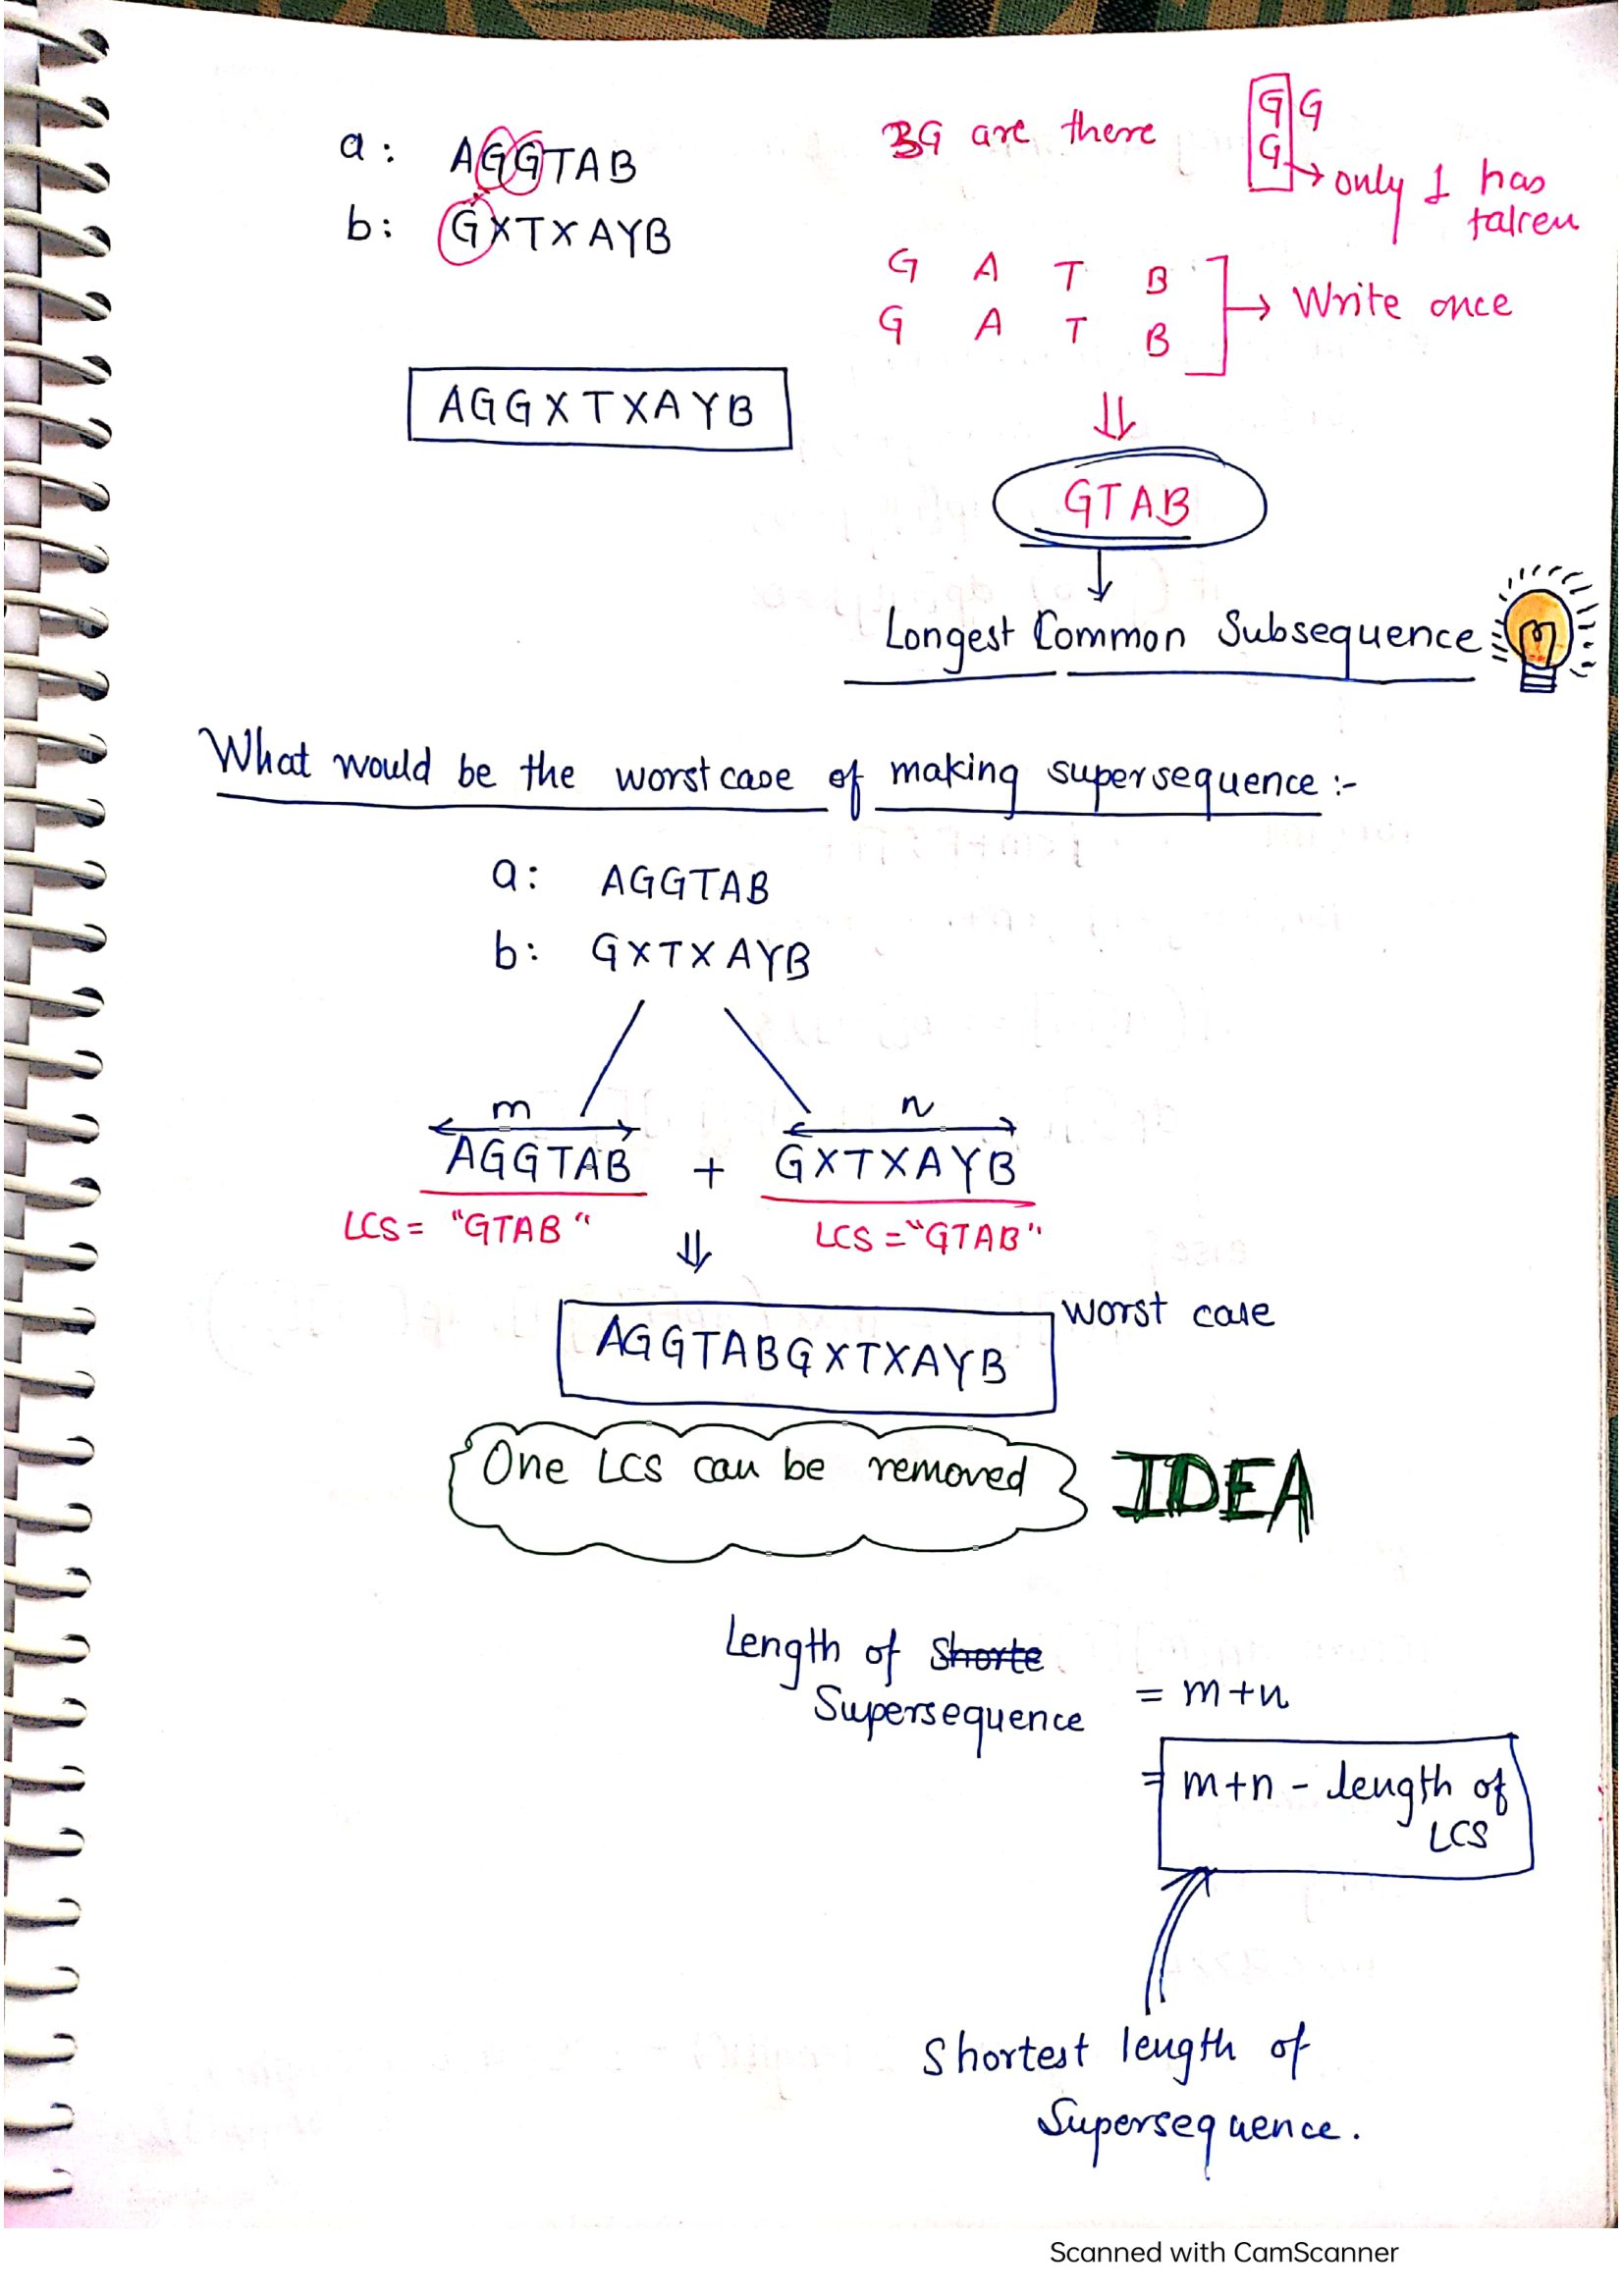 a: AGGTAB
b: GXTXAYB
3G are there
G G
G
only 1 has
taken
G A T B
G A T B
Write once
AGGXTXAYB
GTAB
Longest Common Subsequence
What would be the worst case of making supersequence :-
a: AGGTAB
b: GXTXAYB
m n
AGGTAB + GXTXAYB
LCS = "GTAB" LCS = "GTAB"
AGGTABGXTXAYB
worst case
One LCS can be removed
IDEA
Length of Shorte
Supersequence = m+n
= m+n - length of
LCS
Shortest length of
Supersequence.
Scanned with CamScanner